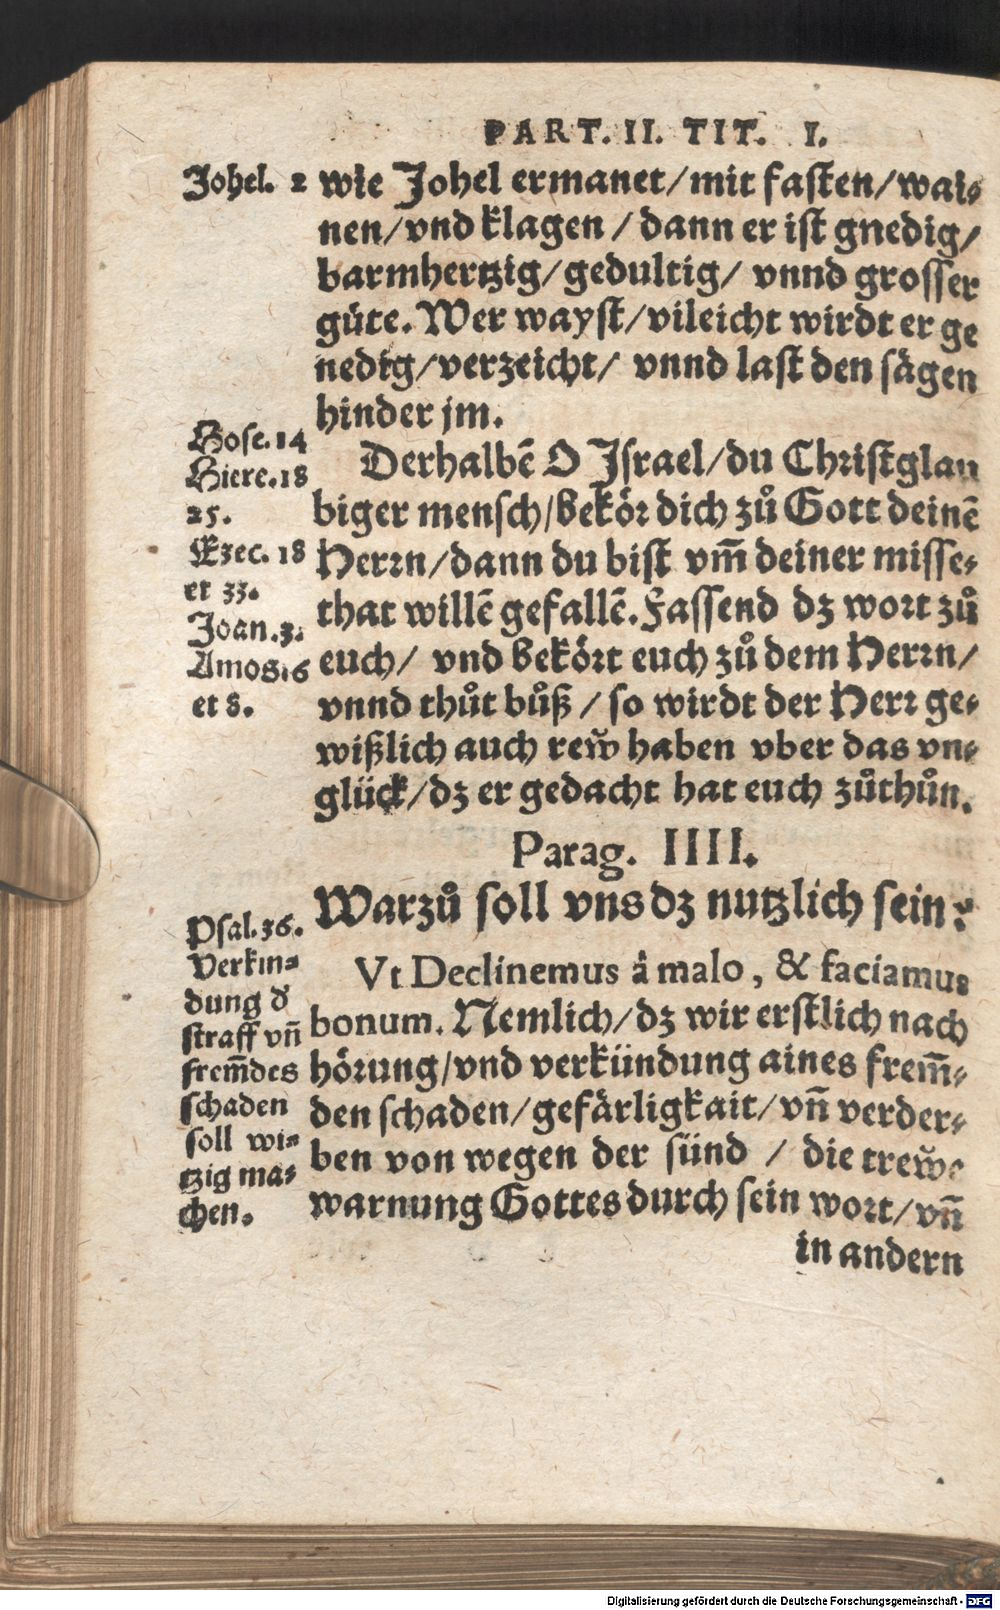 PART. II. TIT. I.
Johel. 2
wie Johel ermanet/mit fasten/wai⸗
nen/vnd klagen/dann er ist gnedig/
barmhertzig/gedultig/ vnnd grosser
güte. Wer wayst/vileicht wirdt er ge
nedig/verzeicht/ vnnd last den sägen
hinder jm.
Hose. 14
Hiere. 18
25.
Ezec. 18
et 33.
Joan. 3.
Amos. 6
et 8.
Derhalbē O Israel/du Christglau
biger mensch/bekör dich zů Gott deinē
Herrn/dann du bist vm̄ deiner misse⸗
that willē gefallē. Fassend dz wort zů
euch/ vnd bekört euch zů dem Herrn/
vnnd thůt bůß/so wirdt der Herr ge⸗
wißlich auch rew̌ haben vber das vn⸗
glück/dz er gedacht hat euch zůthůn.
Parag. IIII.
Warzů soll vns dz nutzlich sein?
Psal. 36.
Verkin⸗
dung d̕
straff vn̄
frem̄des
schaden
soll wi⸗
tzig ma⸗
chen.
Vt Declinemus â malo, & faciamus
bonum. Nemlich/dz wir erstlich nach
hörung/vnd verkündung aines frem̄⸗
den schaden/gefärligkait/vn̄ verder⸗
ben von wegen der sünd / die trew̌e
warnung Gottes durch sein wort/vn̄
in andern
Digitalisierung gefördert durch die Deutsche Forschungsgemeinschaft - DFG